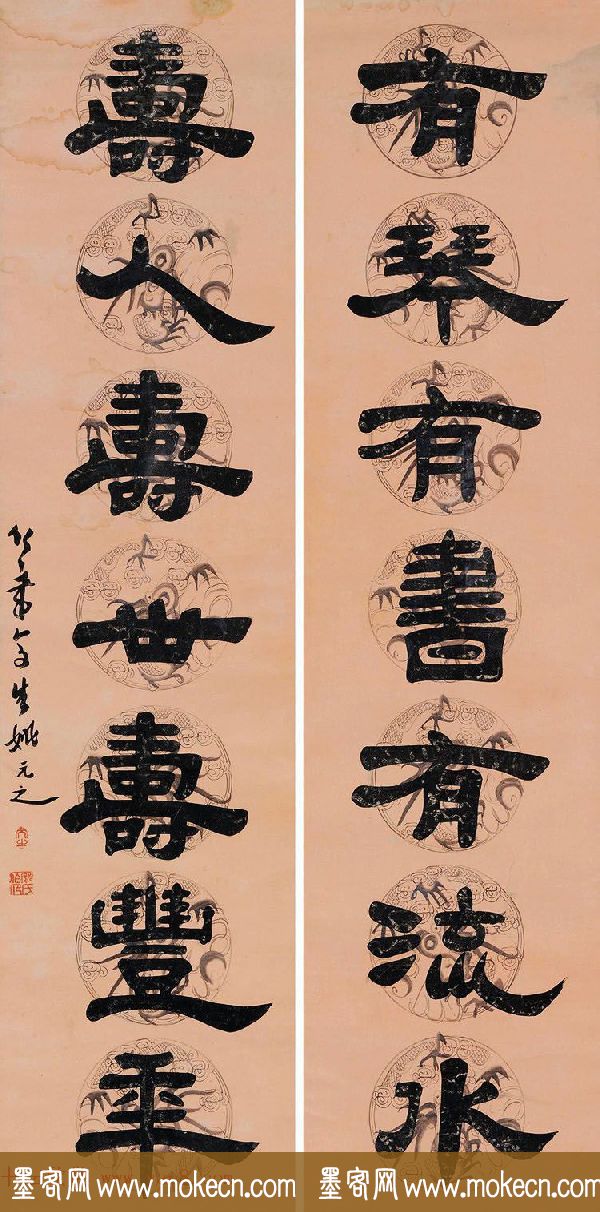 有琴有書有流水
壽人壽世壽豐年
竹葉亭生姚元之
墨客网 www.mokecn.com
墨客网 www.mokecn.com